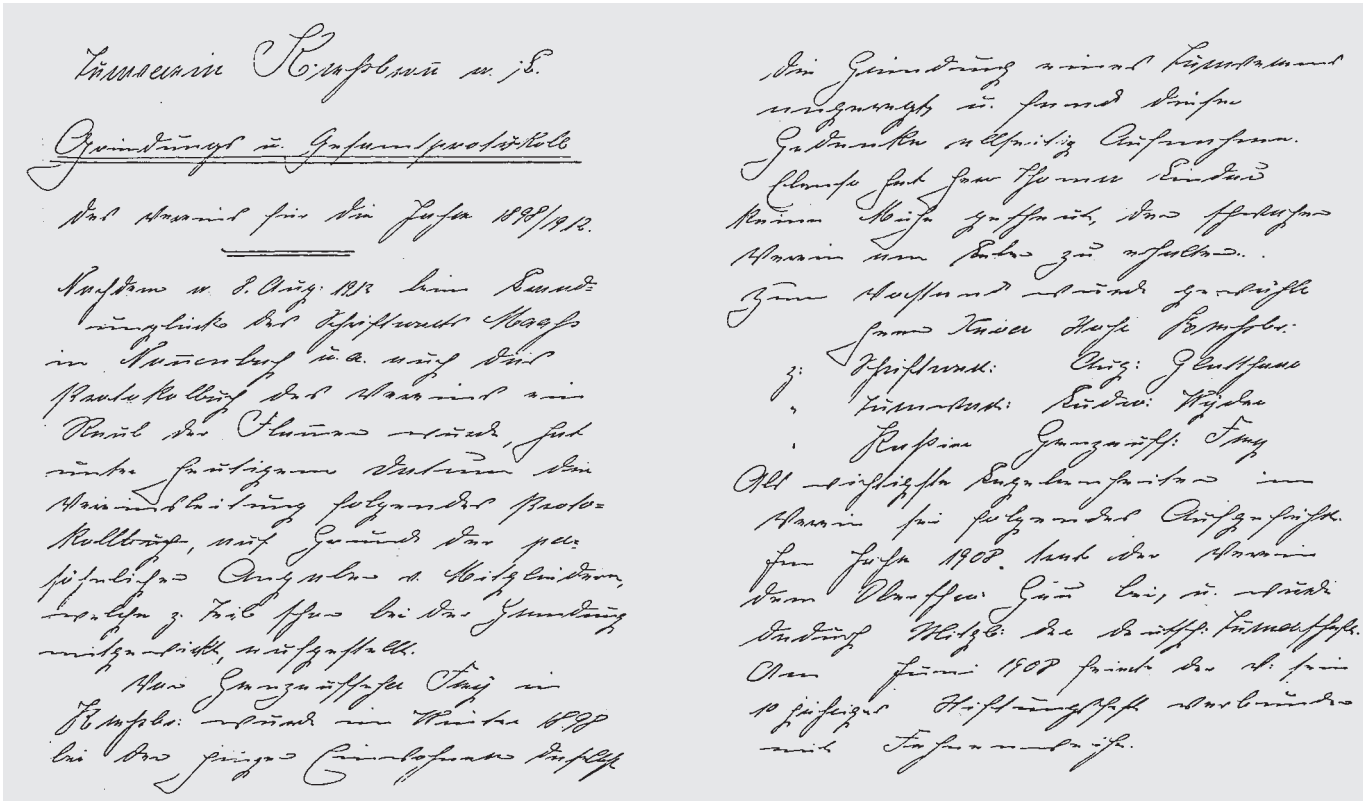 Turnverein Kressbronn a. /B.
Gründungs u. Gesamtprotokoll
des Vereins für die Jahre 1898/1912.
Nachdem a. 8. Aug. 1912 beim Brand-
unglück des Schriftwarts
in Nonnenbach u. a. auch das
Protokollbuch des Vereins ein
Raub der Flamen wurde, hat
unter heutigem Datum die
Vereinsleitung folgendes Proto-
kollbuch, auf Grund der per-
sönlichen Angaben v. Mitgliedern,
welche z. Teil schon bei der Gründung
mitgewirkt, aufgestellt.
Von Grenzaufseher Frey in
Kressbr: wurde im Winter 1898
bei den hiesigen Einwohnern daselbst
die Gründung eines Turnvereins
angeregt u. fand dieser
Gedanke allseitig Aufnahme.
Ebenso hat Herr Thomas Lindau
keine Mühe gescheut, den schwachen
Verein am Leben zu erhalten.
Zum Vorstand wurde gewählt
Herr Xaver Kressbr:
z: Schriftwart: Aug:
" Turnwart: Ludw:
" Kassier Grenzaufs: Frey
Als wichtigste Begebenheiten im
Verein sei folgendes Aufgeführt.
Im Jahre 1908. trat der Verein
dem Oberschw: Gau bei, u. wurde
dadurch Mitgl: der deutsch: Turnerschaft.
Am Juni 1908 feierte der V: sein
10 jähriges Stiftungsfest verbunden
mit Fahnenweihe.